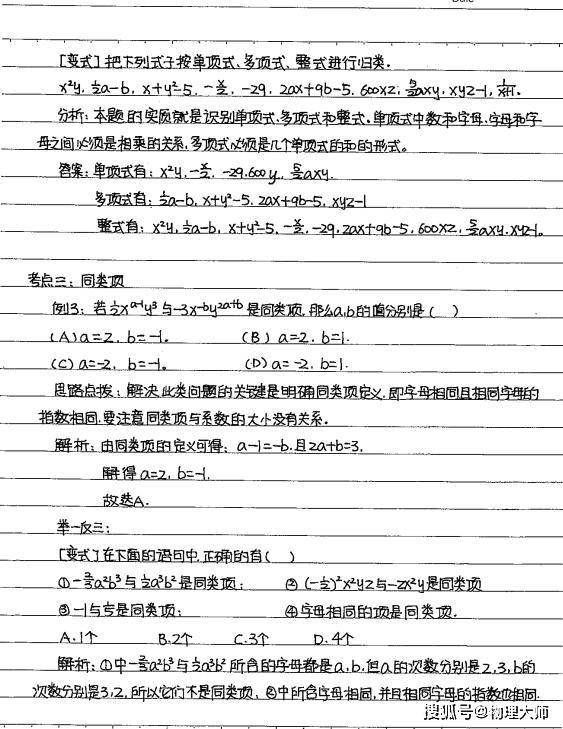 Date
[变式]把下列式子按单项式、多项式、整式进行归类.
x²y, ½a-b, x+y²-5, -x/2, -29, 2ax+9b-5, 600xz, 5/3axy, xyz-1, 1/x+1.
分析:本题的实质就是识别单项式、多项式和整式.单项式中数和字母、字母和字
母之间必须是相乘的关系,多项式必须是几个单项式的和的形式。
答案:单项式有:x²y, -x/2, -29,600y, 5/3axy.
多项式有:½a-b, x+y²-5, 2ax+9b-5, xyz-1
整式有:x²y, ½a-b, x+y²-5, -x/2, -29, 2ax+9b-5, 600xz, 5/3axy, xyz-1。
考点三:同类项
例3:若½xᵃ⁻¹y³与-3x⁻ᵇy²ᵃ⁺ᵇ是同类项,那么a,b的值分别是( )
(A)a=2, b=-1. (B) a=2, b=1.
(C) a=-2, b=-1. (D) a=-2, b=1.
思路点拨:解决此类问题的关键是明确同类项定义,即字母相同且相同字母的
指数相同,要注意同类项与系数的大小没有关系.
解析:由同类项的定义可得:a-1=-b,且2a+b=3,
解得a=2, b=-1,
故选A.
举一反三:
[变式]在下面的语句中,正确的有( )
①-⅔a²b³与½a³b²是同类项; ②(-½)²x²yz与-zx²y是同类项
③-1与⅕是同类项; ④字母相同的项是同类项.
A.1个 B.2个 C.3个 D.4个
解析:①中-⅔a²b³与½a³b²所含的字母都是a,b,但a的次数分别是2,3,b的
次数分别是3,2,所以它们不是同类项;②中所含字母相同,并且相同字母的指数也相同
搜狐号@物理大师